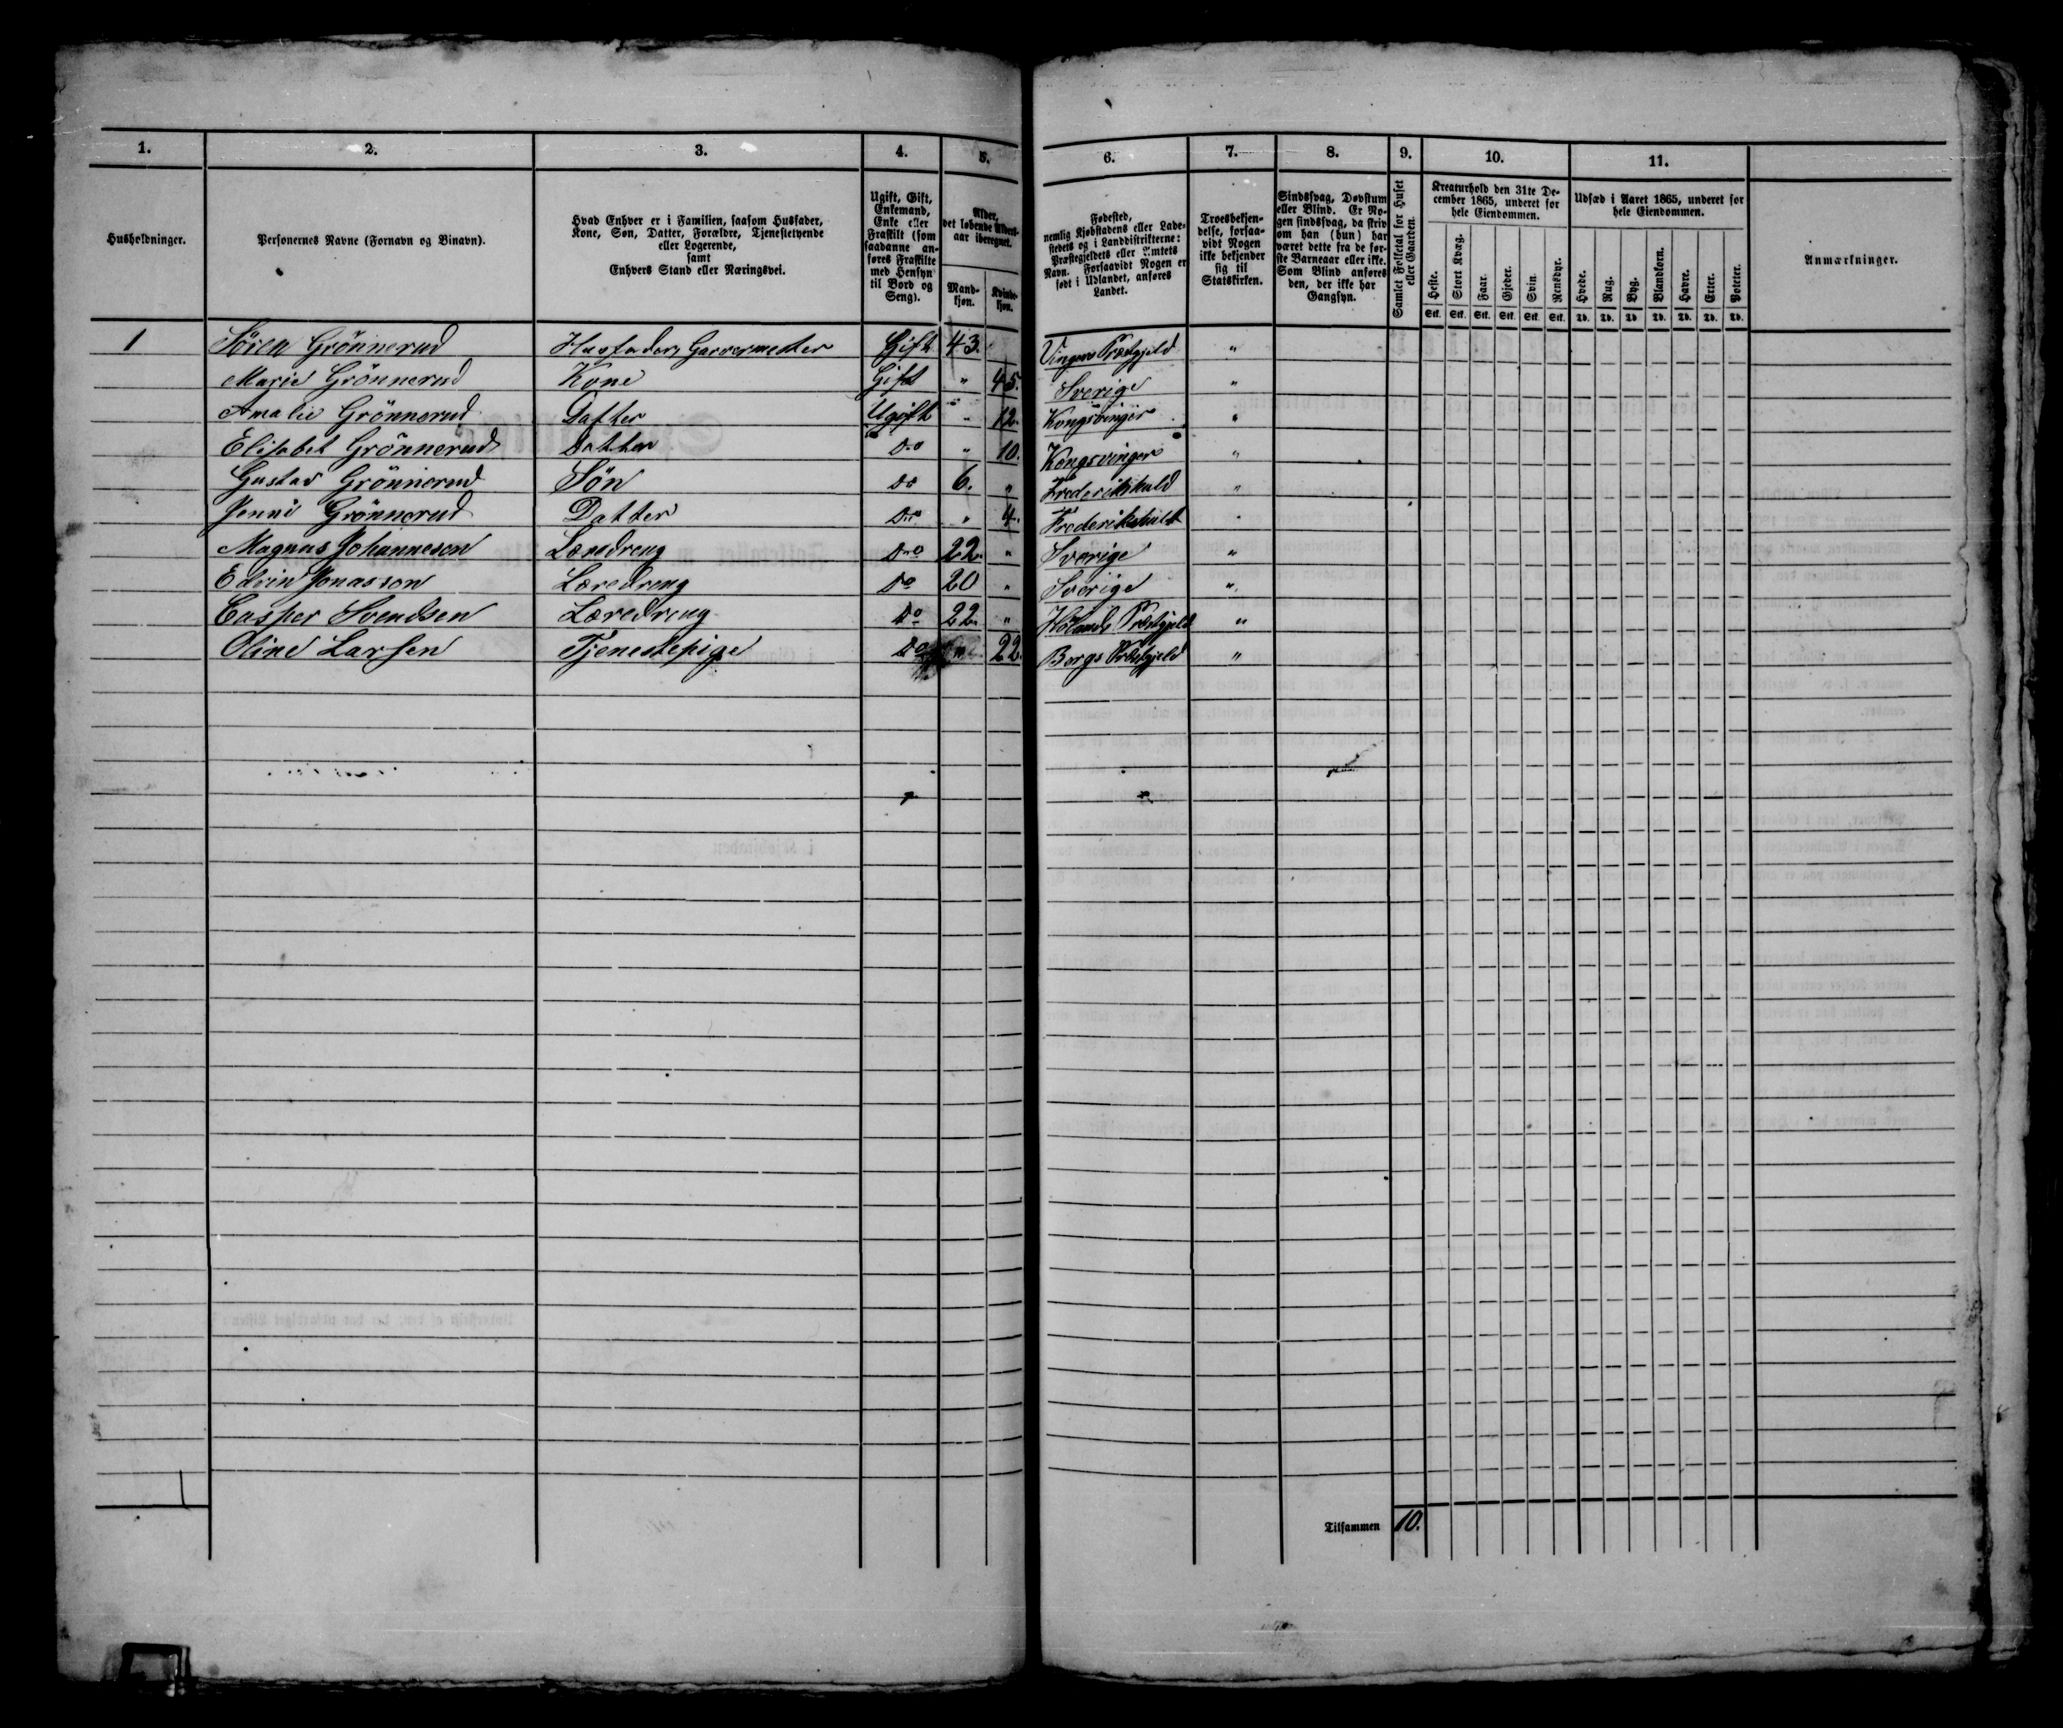 1. 2. 3. 4. 5. 6. 7. 8. 9. 10. 11.
Husholdninger.
Personernes Navne (Fornavn og Binavn).
Hvad Enhver er i Familien, saasom Husfader,
Kone, Søn, Datter, Forældre, Tjenestetyende
eller Logerende,
samt
Enhvers Stand eller Næringsvei.
Ugift, Gift,
Enkemand,
Enke eller
Fraskilt (som
saadanne an-
føres Fraskilte
med Hensyn
til Bord og
Seng).
Alder,
det løbende Alders-
aar iberegnet.
Mand-
kjøn.
Kvinde-
kjøn.
Fødested,
nemlig Kjøbstadens eller Lade-
stedets og i Landdistrikterne:
Præstegjeldets eller Amtets
Navn. Forsaavidt Nogen er
født i Udlandet, anføres
Landet.
Troesbekjen-
delse, forsaa-
vidt Nogen
ikke bekjender
sig til
Statskirken.
Sindssvag, Døvstum
eller Blind. Er No-
gen sindssvag, da skriv
om han (hun) har
været dette fra de før-
ste Barneaar eller ikke.
Som Blind anføres
den, der ikke har
Gangsyn.
Samlet Folketal for Huset
eller Gaarden.
Kreaturhold den 31te De-
cember 1865, underet for
hele Eiendommen.
Heste. Stort Kvæg. Faar. Gjeder. Svin. Rensdyr.
Stk. Stk. Stk. Stk. Stk. Stk.
Udsæd i Aaret 1865, underet for
hele Eiendommen.
Hvede. Rug. Byg. Blandkorn. Havre. Erter. Poteter.
Td. Td. Td Td. Td. Td. Td.
Anmærkninger.
1 Søren Grönnerud Husfader, Garvermester Gift 43. Vinger Præstgjeld "
Marie Grönnerud Kone Gift " 45. Sverige "
Amalie Grönnerud Datter Ugift " 12. Kongsvinger "
Elisabet Grönnerud Datter Do " 10. Kongsvinger "
Gustav Grönnerud Søn Do 6. " Frederikshald "
Jenni Grönnerud Datter Do " 4. Frederikshald "
Magnus Johanneson Læredreng Do 22. " Sverige "
Edvin Jonasson Læredreng Do 20 " Sverige "
Casper Svendsen Læredreng Do 22. " Hölands Præstgjeld "
Oline Larsen Tjenestepige Do " 22. Borgs Præstgjeld "
1
Tilsammen 10.